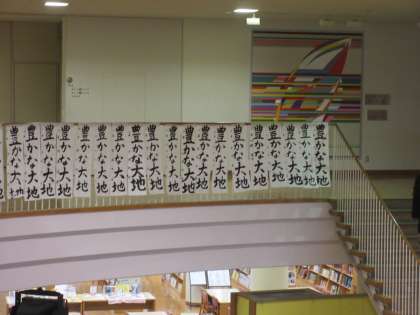 豊かな大地
豊かな大地
豊かな大地
豊かな大地
豊かな大地
豊かな大地
豊かな大地
豊かな大地
豊かな大地
豊かな大地
豊かな大地
豊かな大地
豊かな大地
豊かな大地
豊かな大地
豊かな大地
豊かな大地
豊かな大地
豊かな大地